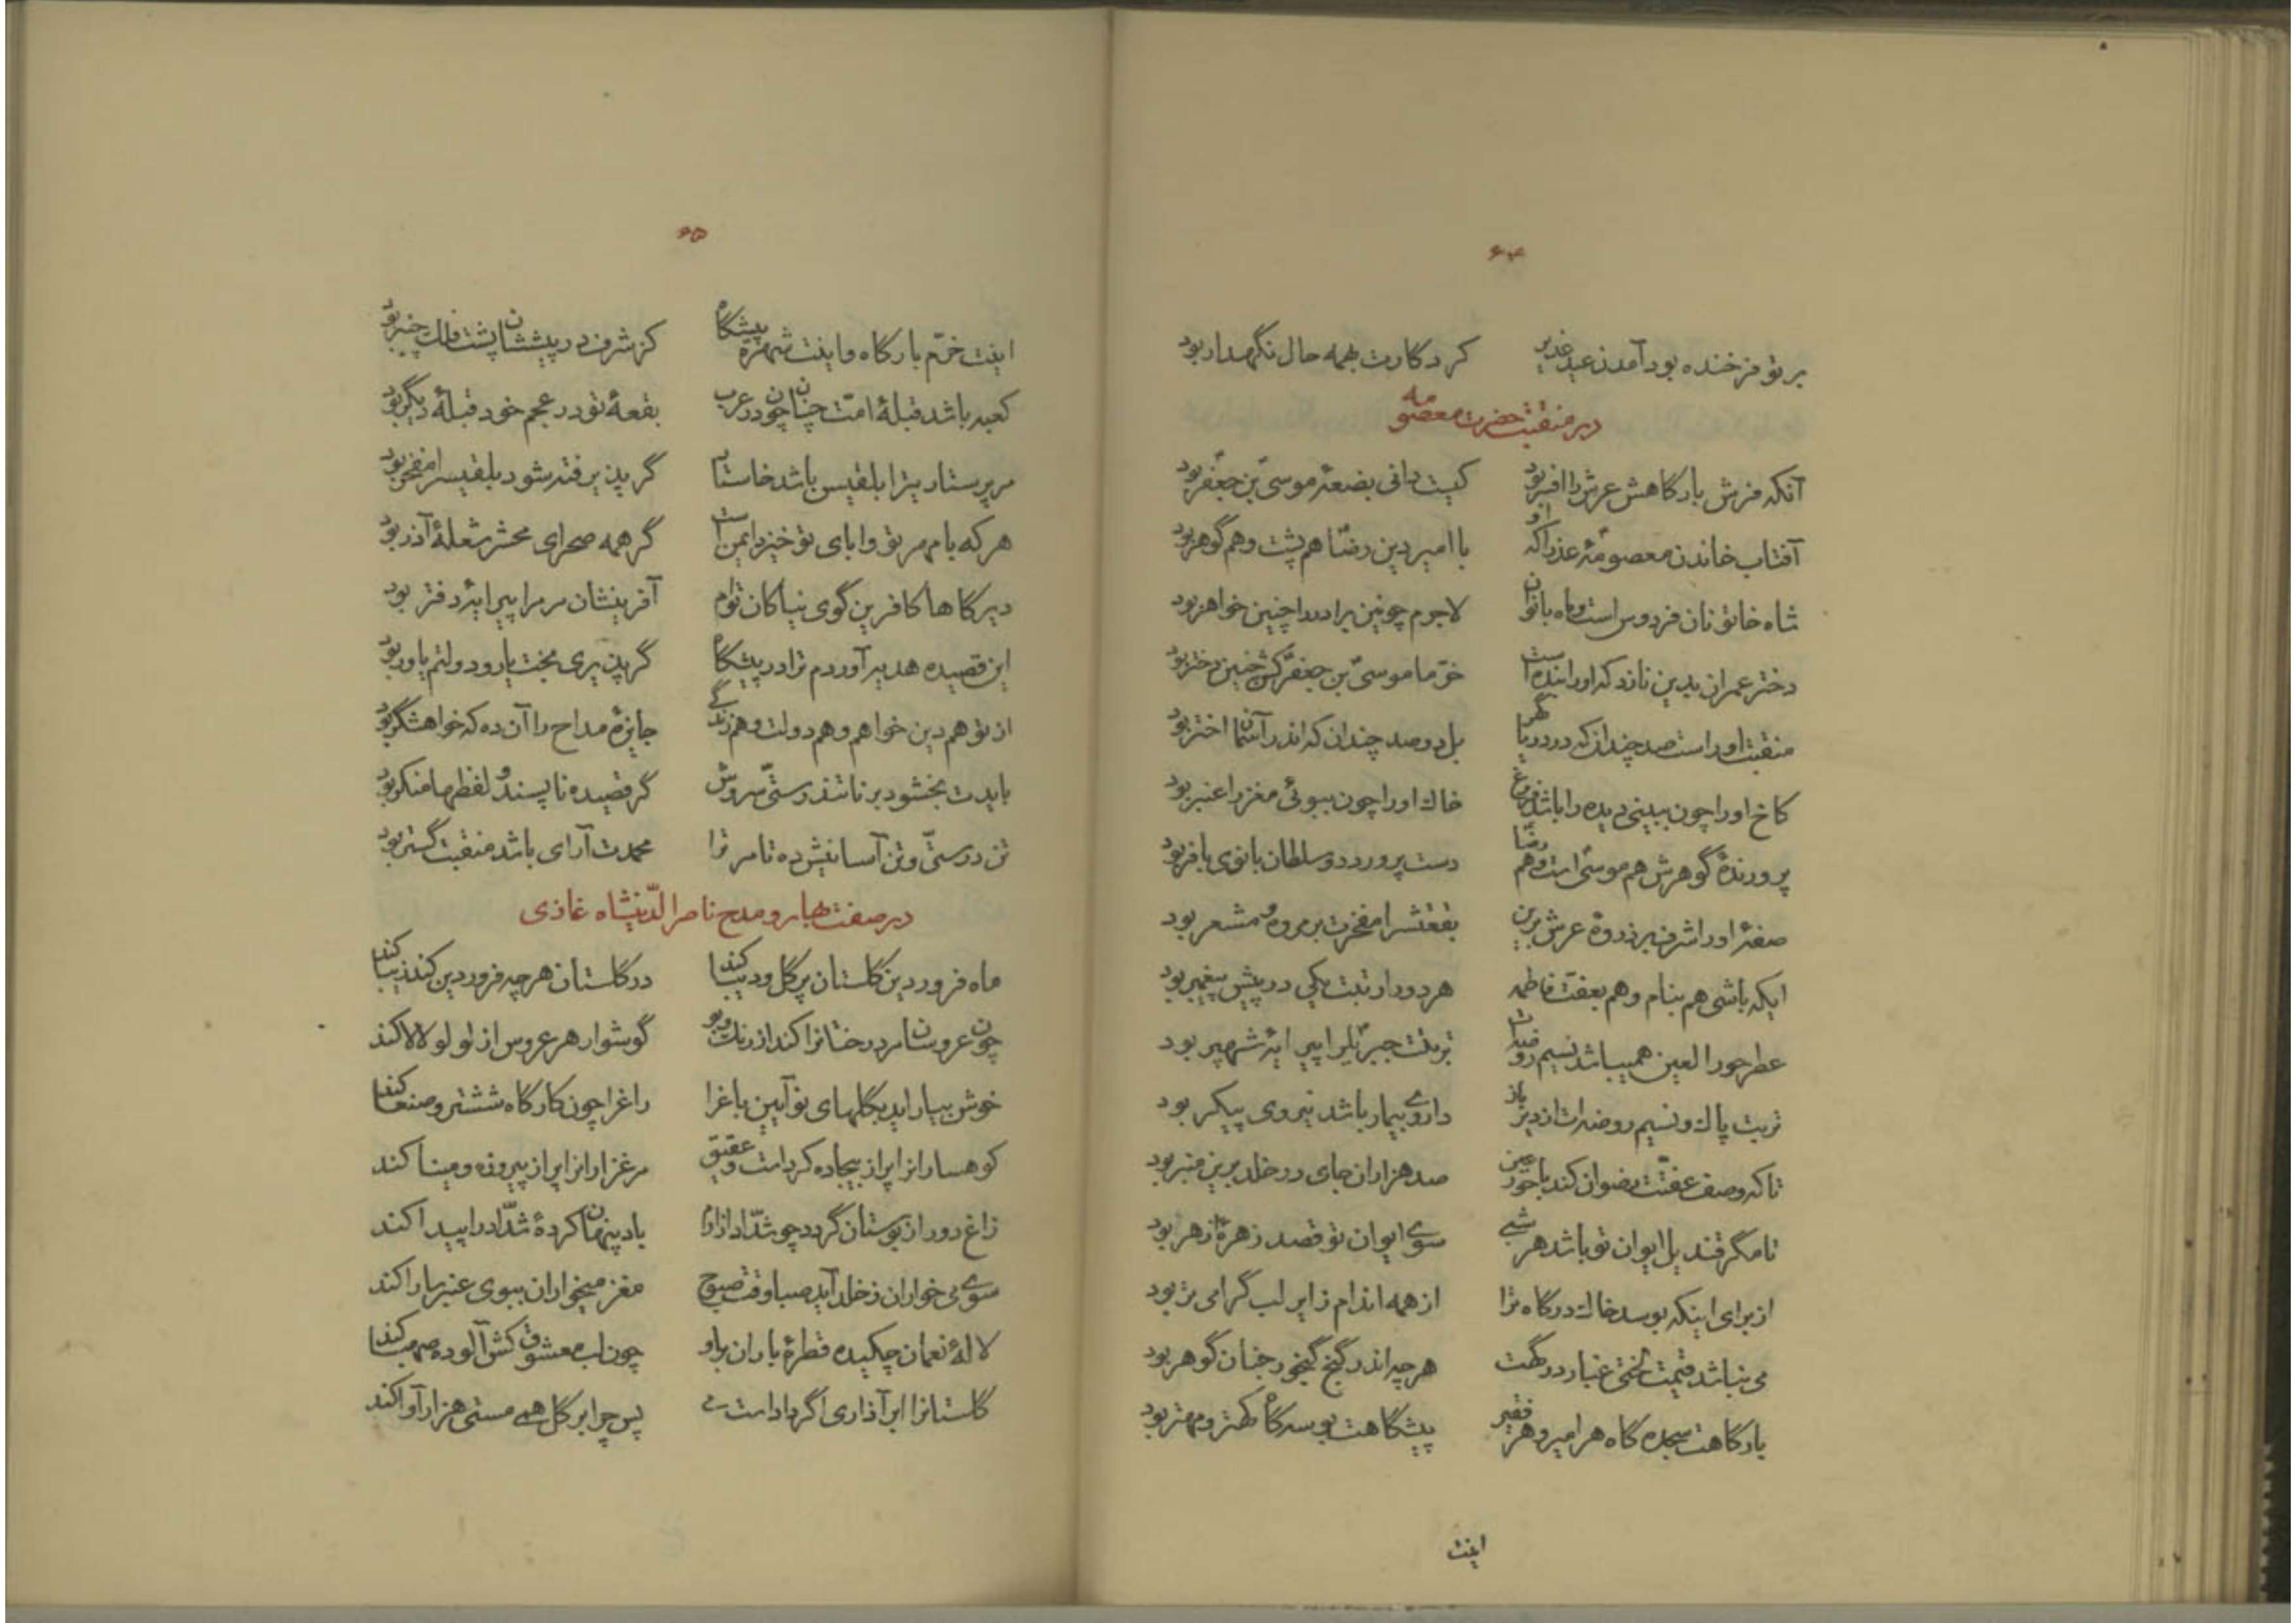 ۶۴
بر تو فرخنده بود آمدن عید غدیر کردگارت بهمه حال نگهدار بود
در منقبت حضرت معصومه
آنکه فرش بارگاهش عرش را افسر بود کیست دانی بضعهٔ موسی بن جعفر بود
آفتاب خاندن معصومهٔ عذرا که او با امیر دین رضا هم پشت و هم گوهر بود
شاه خاتونان فردوس است و ماه بانوان لاجرم چونین برادر را چنین خواهر بود
دختر عمران بدین نازد که او را بنده است خرّما موسی بن جعفر کش چنین دختر بود
منقبت او راست صد چندان که در دریا گهر بل دو صد چندان که اندر آسمان اختر بود
کاخ او را چون ببینی دیده را باشد فروغ خاک او را چون ببوئی مغز را عنبر بود
پرورندهٔ گوهرش هم موسی است و هم رضا دست پرورد دو سلطان بانوی با فر بود
صفهٔ او را شرف بر ذروهٔ عرش برین بقعتش را مفخرت بر مروه و مشعر بود
ایکه باشی هم بنام و هم بعفت فاطمه هر دو را رتبت یکی در پیش پیغمبر بود
عطر حور العین همیباشد نسیم روضه‌ات تربتت جبریل را پیرایهٔ شهپر بود
تربت پاک و نسیم روضه‌ات از دیر باز داروی بیمار باشد نیروی پیکر بود
تا که وصف عفتت رضوان کند با حور عین صد هزاران جای در خلد برین منبر بود
تا مگر قندیل ایوان تو باشد هر شبی سوی ایوان تو قصد زهرهٔ ازهر بود
از برای اینکه بوسد خاک درگاه ترا از همه اندام زایر لب گرامی تر بود
می نباشد قیمت لختی غبار درگهت هر چه اندر گنج گیخور جنان گوهر بود
بارگاهت سجده گاه هر امیر و هر فقیر پیشگاهت بوسه گاه کهتر و مهتر بود
اینت
۶۵
اینت خرّم بارگاه و اینت شهره پیشگاه کز شرف در پیششان پشت فلک چنبر بود
کعبه باشد قبلهٔ امّت چنان چون در عرب بقعهٔ تو در عجم خود قبلهٔ دیگر بود
مر پرستاریترا بلقیس باشد خاستار گر پذیرفته شود بلقیس را مفخر بود
هر که با مهر تو و ابای تو خیزد ایمن است گر همه صحرای محشر شعلهٔ آذر بود
دیرگاها کافرین گوی نیاکان توام آفرینشان مر مرا پیرایهٔ دفتر بود
این قصیده هدیه آوردم ترا در پیشگاه گر پذیری بخت یار و دولتم یاور بود
از تو هم دین خواهم و هم دولت و هم زندگی جایزهٔ مداح را آن ده که خواهشگر بود
بایدت بخشود بر نا تندرستی سروش گر قصیده ناپسند و لفظها منکر بود
تن درستیّ و تن آسانیش ده تا مر ترا محمدت آرای باشد منقبت گستر بود
در صفت بهار و مدح ناصر الدّینشاه غازی
ماه فروردین گلستان پر گل و دیبا کند در گلستان هر چه فروردین کند زیبا کند
چون عروسان مر درختانرا کند از رنگ و بو گوشوار هر عروس از لولو لالا کند
خوش بیاراید بگلهای نو آیین باغ را راغ را چون کارگاه ششتر و صنعا کند
کوهسارانرا پر از بیجاده کرد است و عقیق مرغزارانرا پر از پیروزه و مینا کند
زاغ دور از بوستان گردد چو شدّاد از ارم باد پنهان کردهٔ شدّاد را پیدا کند
سوی می خواران ز خلد آید صبا وقت صبوح مغز میخواران ببوی عنبر سارا کند
لالهٔ نعمان چکیده قطرهٔ باران براو چون لب معشوق کش آلوده صهبا کند
گلستانرا ابر آذاری اگر دادست می پس چرا بر گل همی مستی هزار آوا کند